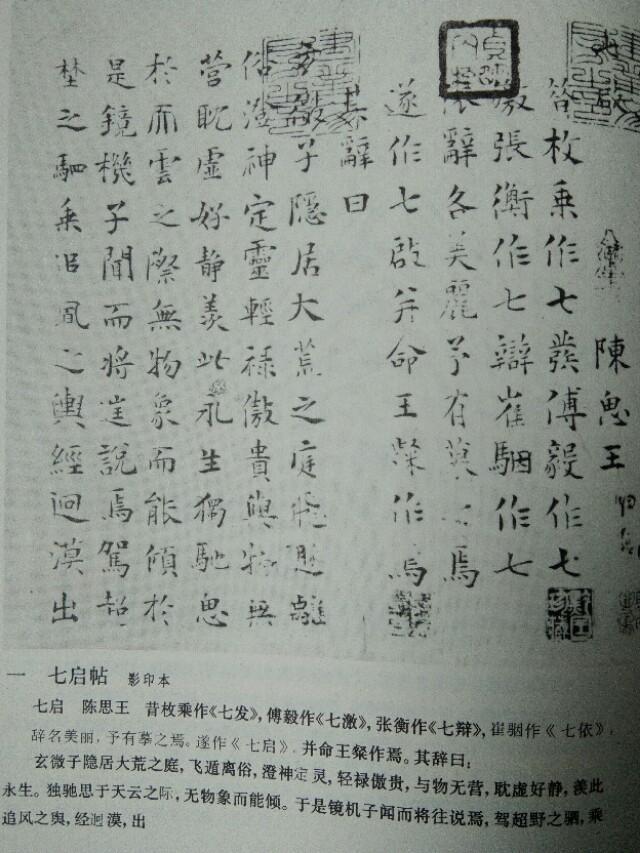 陳思王
昔枚乘作七發傅毅作七
激張衡作七辯崔駰作七
依辭各美麗予有慕之焉
遂作七啟并命王粲作焉
辭曰
子隱居大荒之庭飛遁離
俗澄神定靈輕祿傲貴與物無
營耽虛好静羡此永生獨馳思
於而雲之際無物象而能傾於
是鏡機子聞而將往說焉駕超
埜之駟乘追風之輿經迥漠出
一 七启帖 影印本
七启 陈思王 昔枚乘作《七发》,傅毅作《七激》,张衡作《七辩》,崔骃作《七依》,
辞名美丽,予有摹之焉。遂作《七启》,并命王粲作焉。其辞曰:
玄微子隐居大荒之庭,飞遁离俗,澄神定灵,轻禄傲贵,与物无营,耽虚好静,羡此
永生。独驰思于天云之际,无物象而能倾。于是镜机子闻而将往说焉,驾超野之驷,乘
追风之舆,经迥漠,出